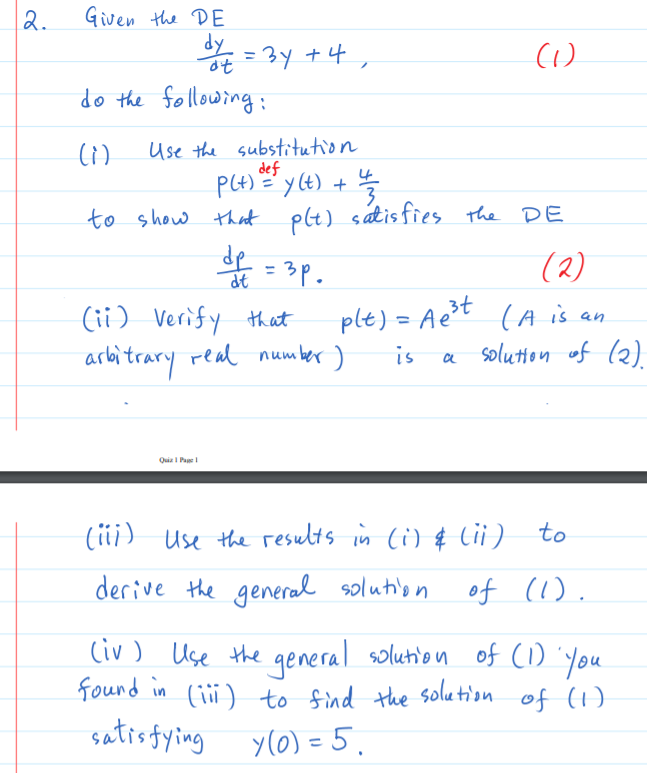 2. Given the DE
dy/dt = 3y + 4, (1)
do the following:
(i) Use the substitution
p(t) =^def y(t) + 4/3
to show that p(t) satisfies the DE
dp/dt = 3p. (2)
(ii) Verify that p(t) = Ae^3t (A is an
arbitrary real number) is a solution of (2).
Quiz 1 Page 1
(iii) Use the results in (i) & (ii) to
derive the general solution of (1).
(iv) Use the general solution of (1) you
found in (iii) to find the solution of (1)
satisfying y(0) = 5.